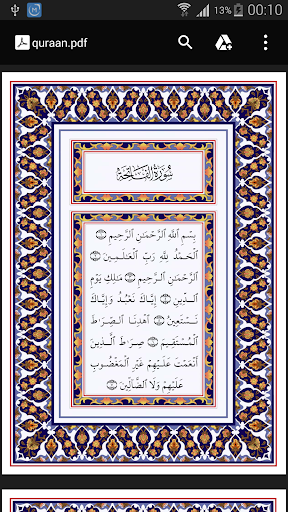 13% 00:10
quraan.pdf
سُورَةُ الْفَاتِحَةِ
بِسْمِ اللَّهِ الرَّحْمَٰنِ الرَّحِيمِ ۝
الْحَمْدُ لِلَّهِ رَبِّ الْعَالَمِينَ ۝
الرَّحْمَٰنِ الرَّحِيمِ ۝ مَالِكِ يَوْمِ
الدِّينِ ۝ إِيَّاكَ نَعْبُدُ وَإِيَّاكَ
نَسْتَعِينُ ۝ اهْدِنَا الصِّرَاطَ
الْمُسْتَقِيمَ ۝ صِرَاطَ الَّذِينَ
أَنْعَمْتَ عَلَيْهِمْ غَيْرِ الْمَغْضُوبِ
عَلَيْهِمْ وَلَا الضَّالِّينَ ۝